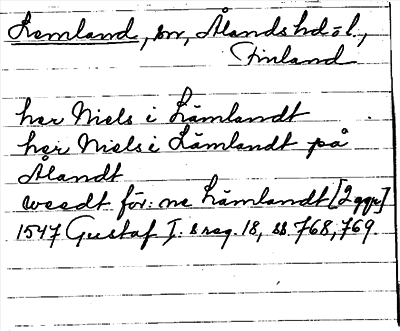 Lemland, sn, Ålands hd o l.,
Finland
her Niels i Lämlandt
her Niels i Lämlandt på
Ålandt
weedt för: ne Lämlandt [2 ggr]
1547 Gustaf I:s reg. 18, ss. 768, 769.